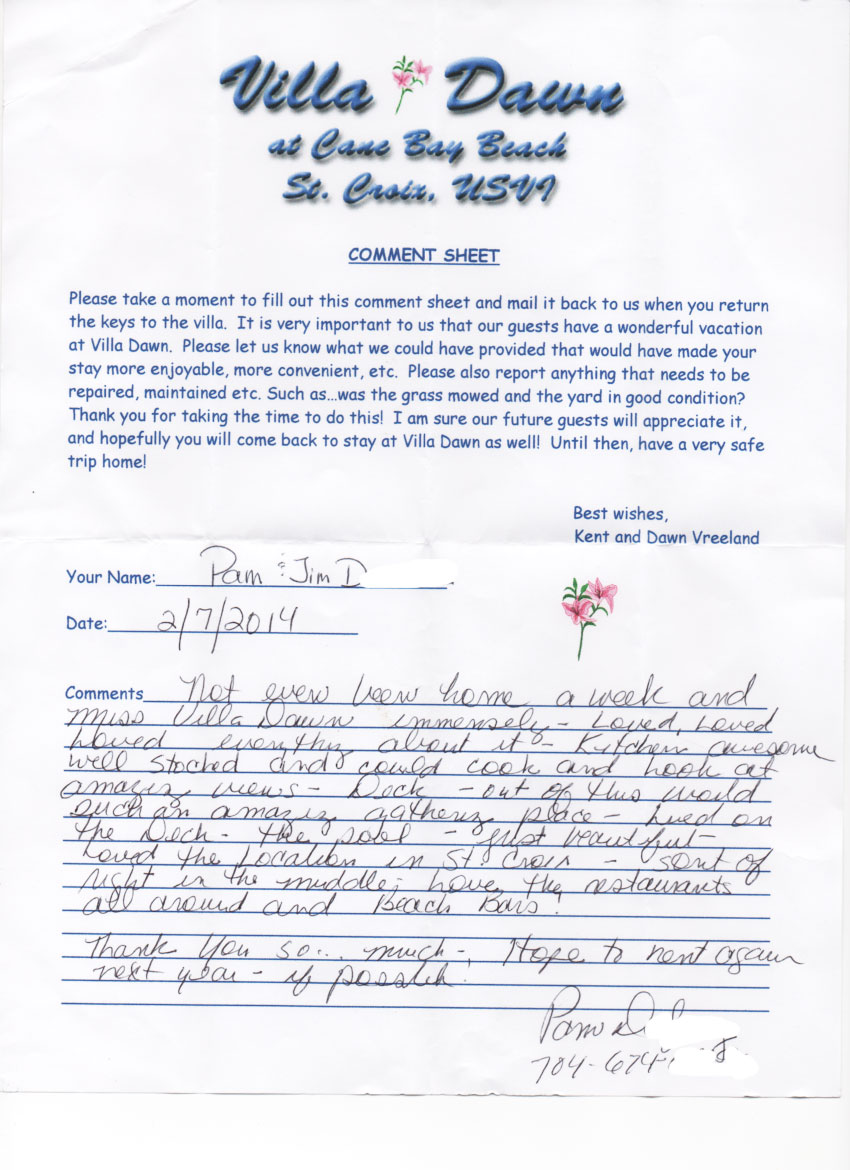 Villa Dawn
at Cane Bay Beach
St. Croix, USVI
COMMENT SHEET
Please take a moment to fill out this comment sheet and mail it back to us when you return
the keys to the villa. It is very important to us that our guests have a wonderful vacation
at Villa Dawn. Please let us know what we could have provided that would have made your
stay more enjoyable, more convenient, etc. Please also report anything that needs to be
repaired, maintained etc. Such as...was the grass mowed and the yard in good condition?
Thank you for taking the time to do this! I am sure our future guests will appreciate it,
and hopefully you will come back to stay at Villa Dawn as well! Until then, have a very safe
trip home!
Best wishes,
Kent and Dawn Vreeland
Your Name: Pam & Jim D
Date: 2/7/2014
Comments Not even been home a week and
miss Villa Dawn immensely - Loved, Loved
Loved everythg about it - Kitchen awesome
well stocked and could cook and look at
amazig views - Deck - out of this world
such an amazig gatherig place - lived on
the Deck - the pool - just beautiful -
Loved the Location in St. Croix - sort of
right in the middle; the restaurants
all around and Beach Bars!
Thank You so... much - Hope to rent again
next year - if possible.
Pam D
704-674-